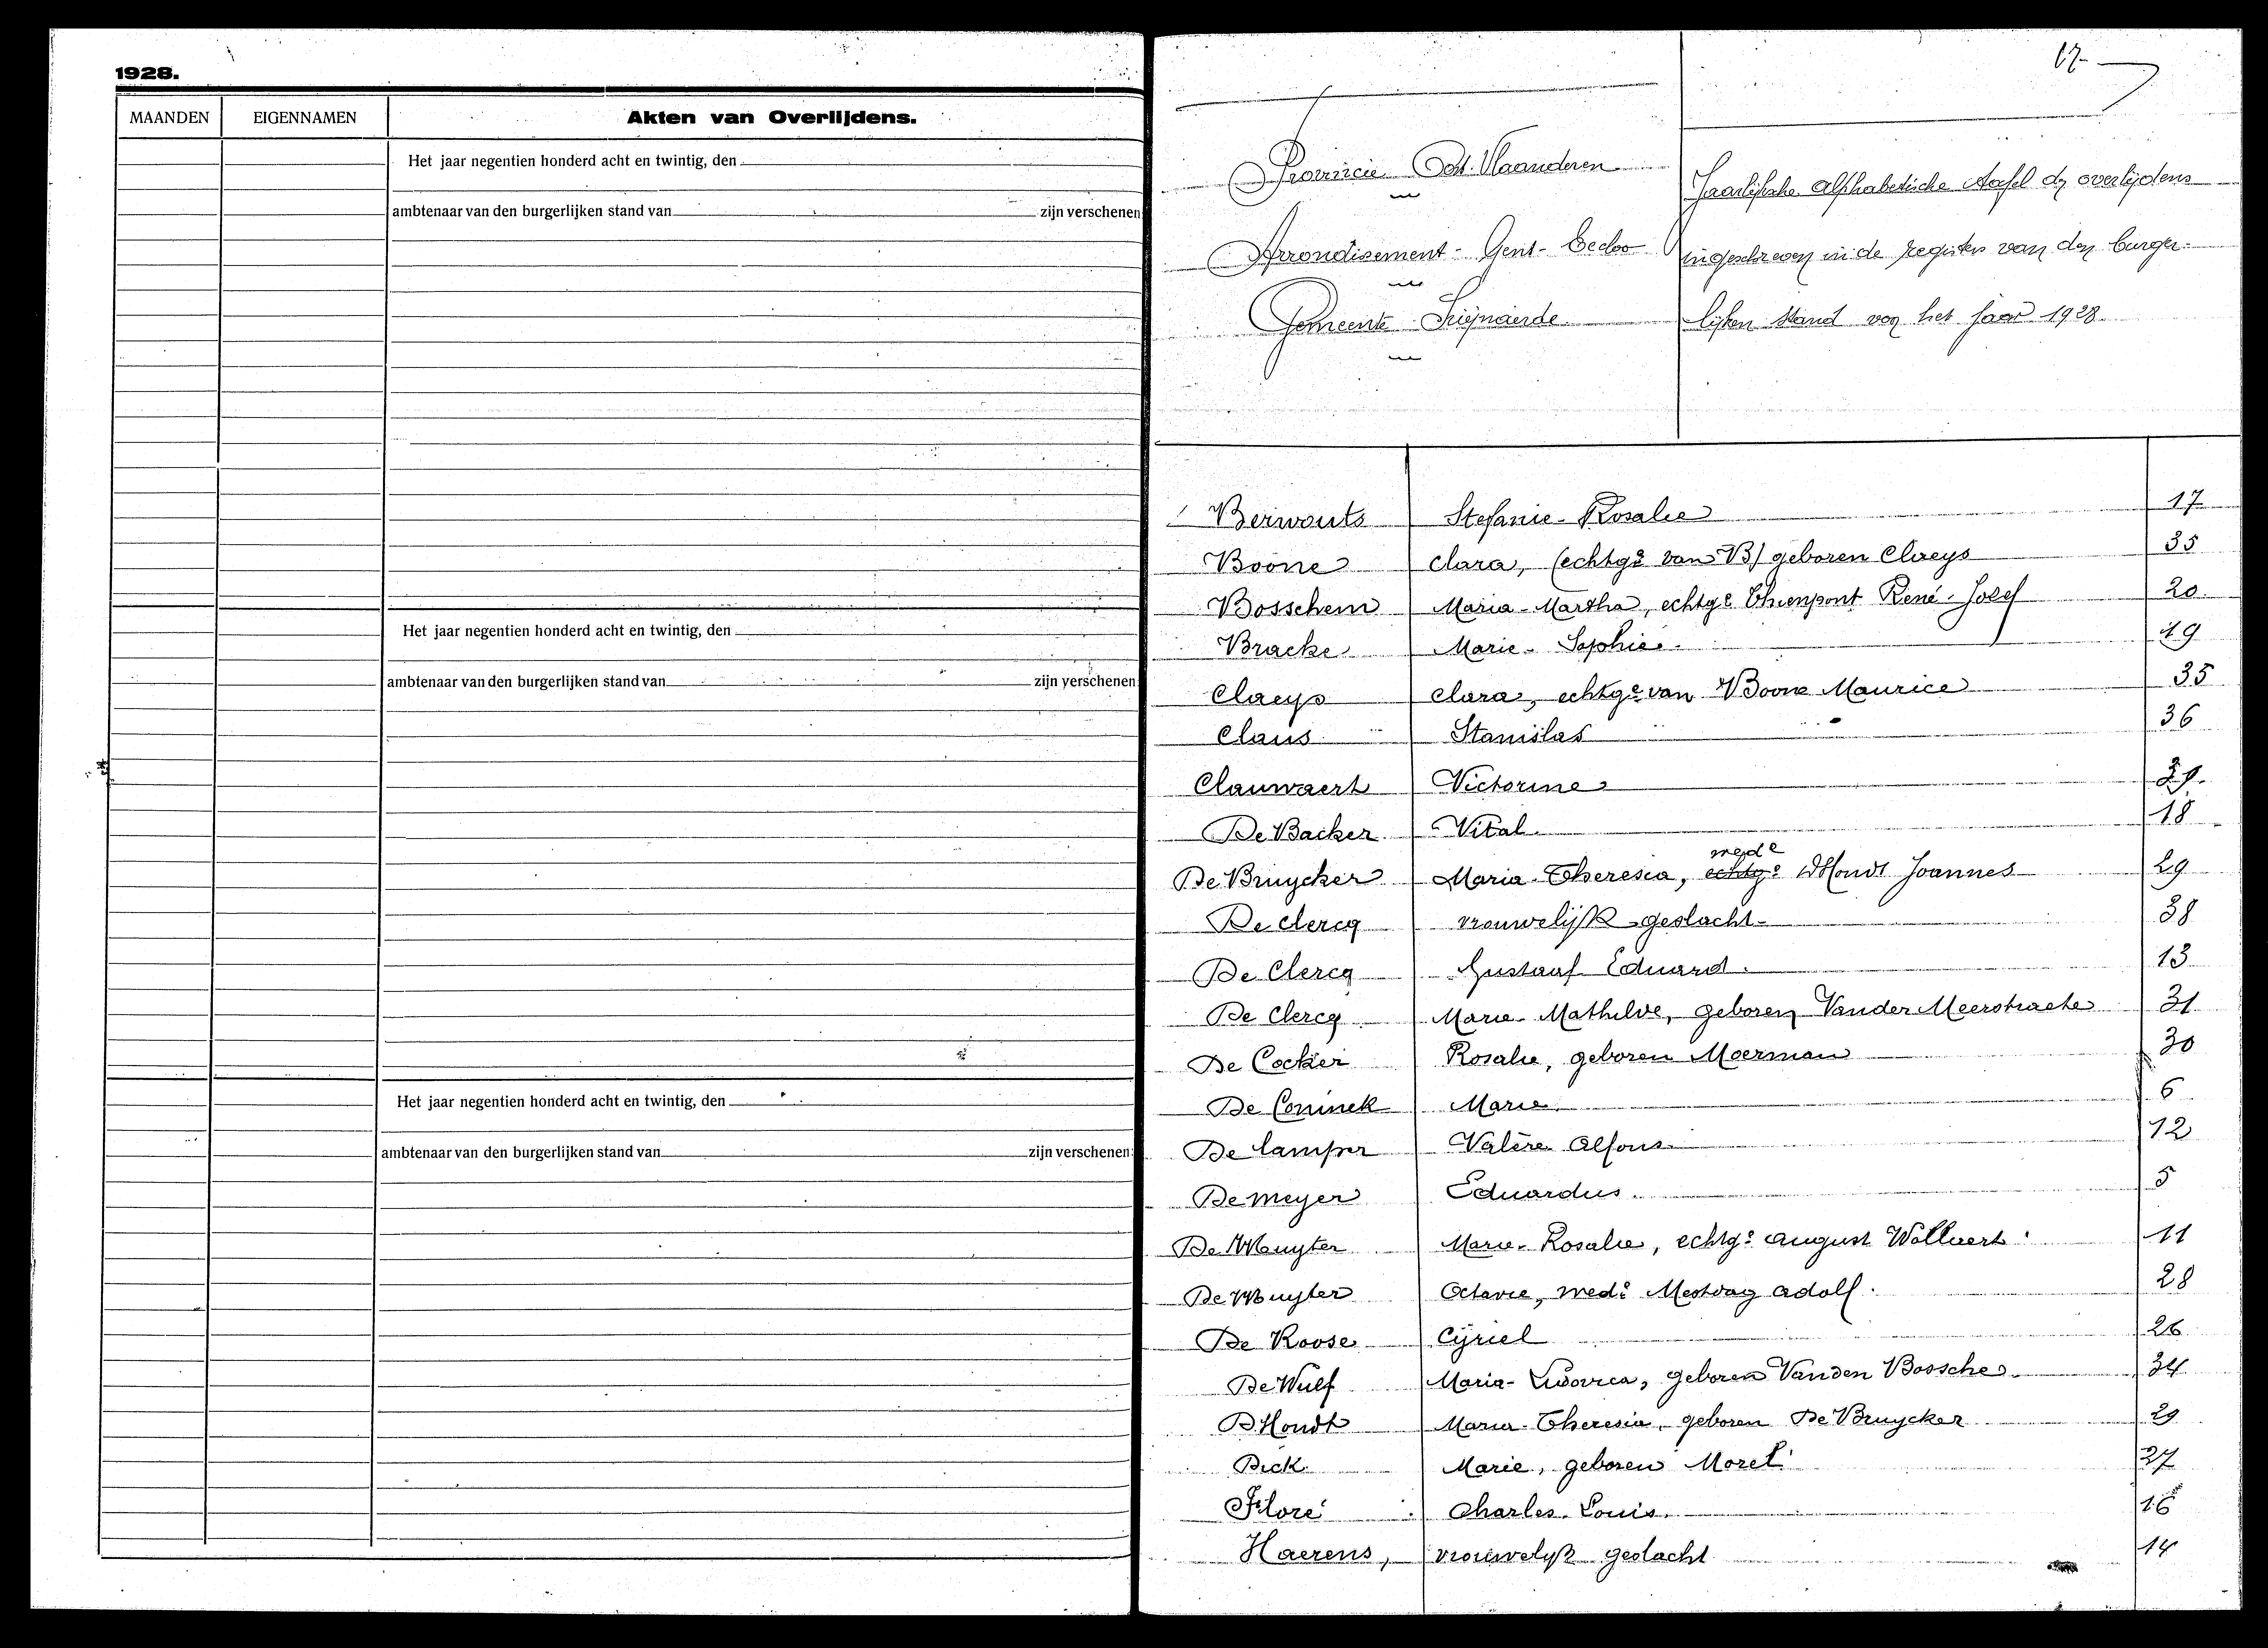 1928.
MAANDEN EIGENNAMEN Akten van Overlijdens.
Het jaar negentien honderd acht en twintig, den
ambtenaar van den burgerlijken stand van zijn verschenen
Het jaar negentien honderd acht en twintig, den
ambtenaar van den burgerlijken stand van zijn verschenen
Het jaar negentien honderd acht en twintig, den
ambtenaar van den burgerlijken stand van zijn verschenen
17
Provincie Oost-Vlaanderen
Arrondisement - Gent - Eecloo
Gemeente Seijnaerde
Jaarlijksche alphabetische tafel der overlijdens
ingeschreven in de registers van den burger-
lijken stand van het jaar 1928.
Berwouts Stefanie - Rosalie 17
Boone Clara, (echtge van B) geboren Claeys 35
Bosschem Maria-Martha, echtge Thienpont René-Josef 20
Bracke Marie - Sophie 19
Claeys Clara, echtge van Boone Maurice 35
Claus Stanislas 36
Clauwaert Victorine 21
De Backer Vital 18
De Bruycker Maria-Theresia, echtge wede D'Hondt Joannes 29
De Clercq vrouwelijk geslacht 38
De Clercq Gustaaf Eduard 13
De Clercq Marie-Mathilde, geboren Vander Meerstraete 31
De Cocker Rosalie, geboren Moerman 30
De Coninck Marie 6
De Camper Valère Alfons 12
De Meyer Eduardus 5
De Muyter Marie-Rosalie, echtge August Wellvert 11
De Muyter Octavie, wede Mestdag Adolf 28
De Roose Cyriel 26
De Wulf Maria-Ludovica, geboren Vanden Bossche 34
D'Hondt Maria-Theresia, geboren De Bruycker 29
Dick Marie, geboren Moret 27
Floré Charles Louis 16
Haerens, vrouwelijk geslacht 14